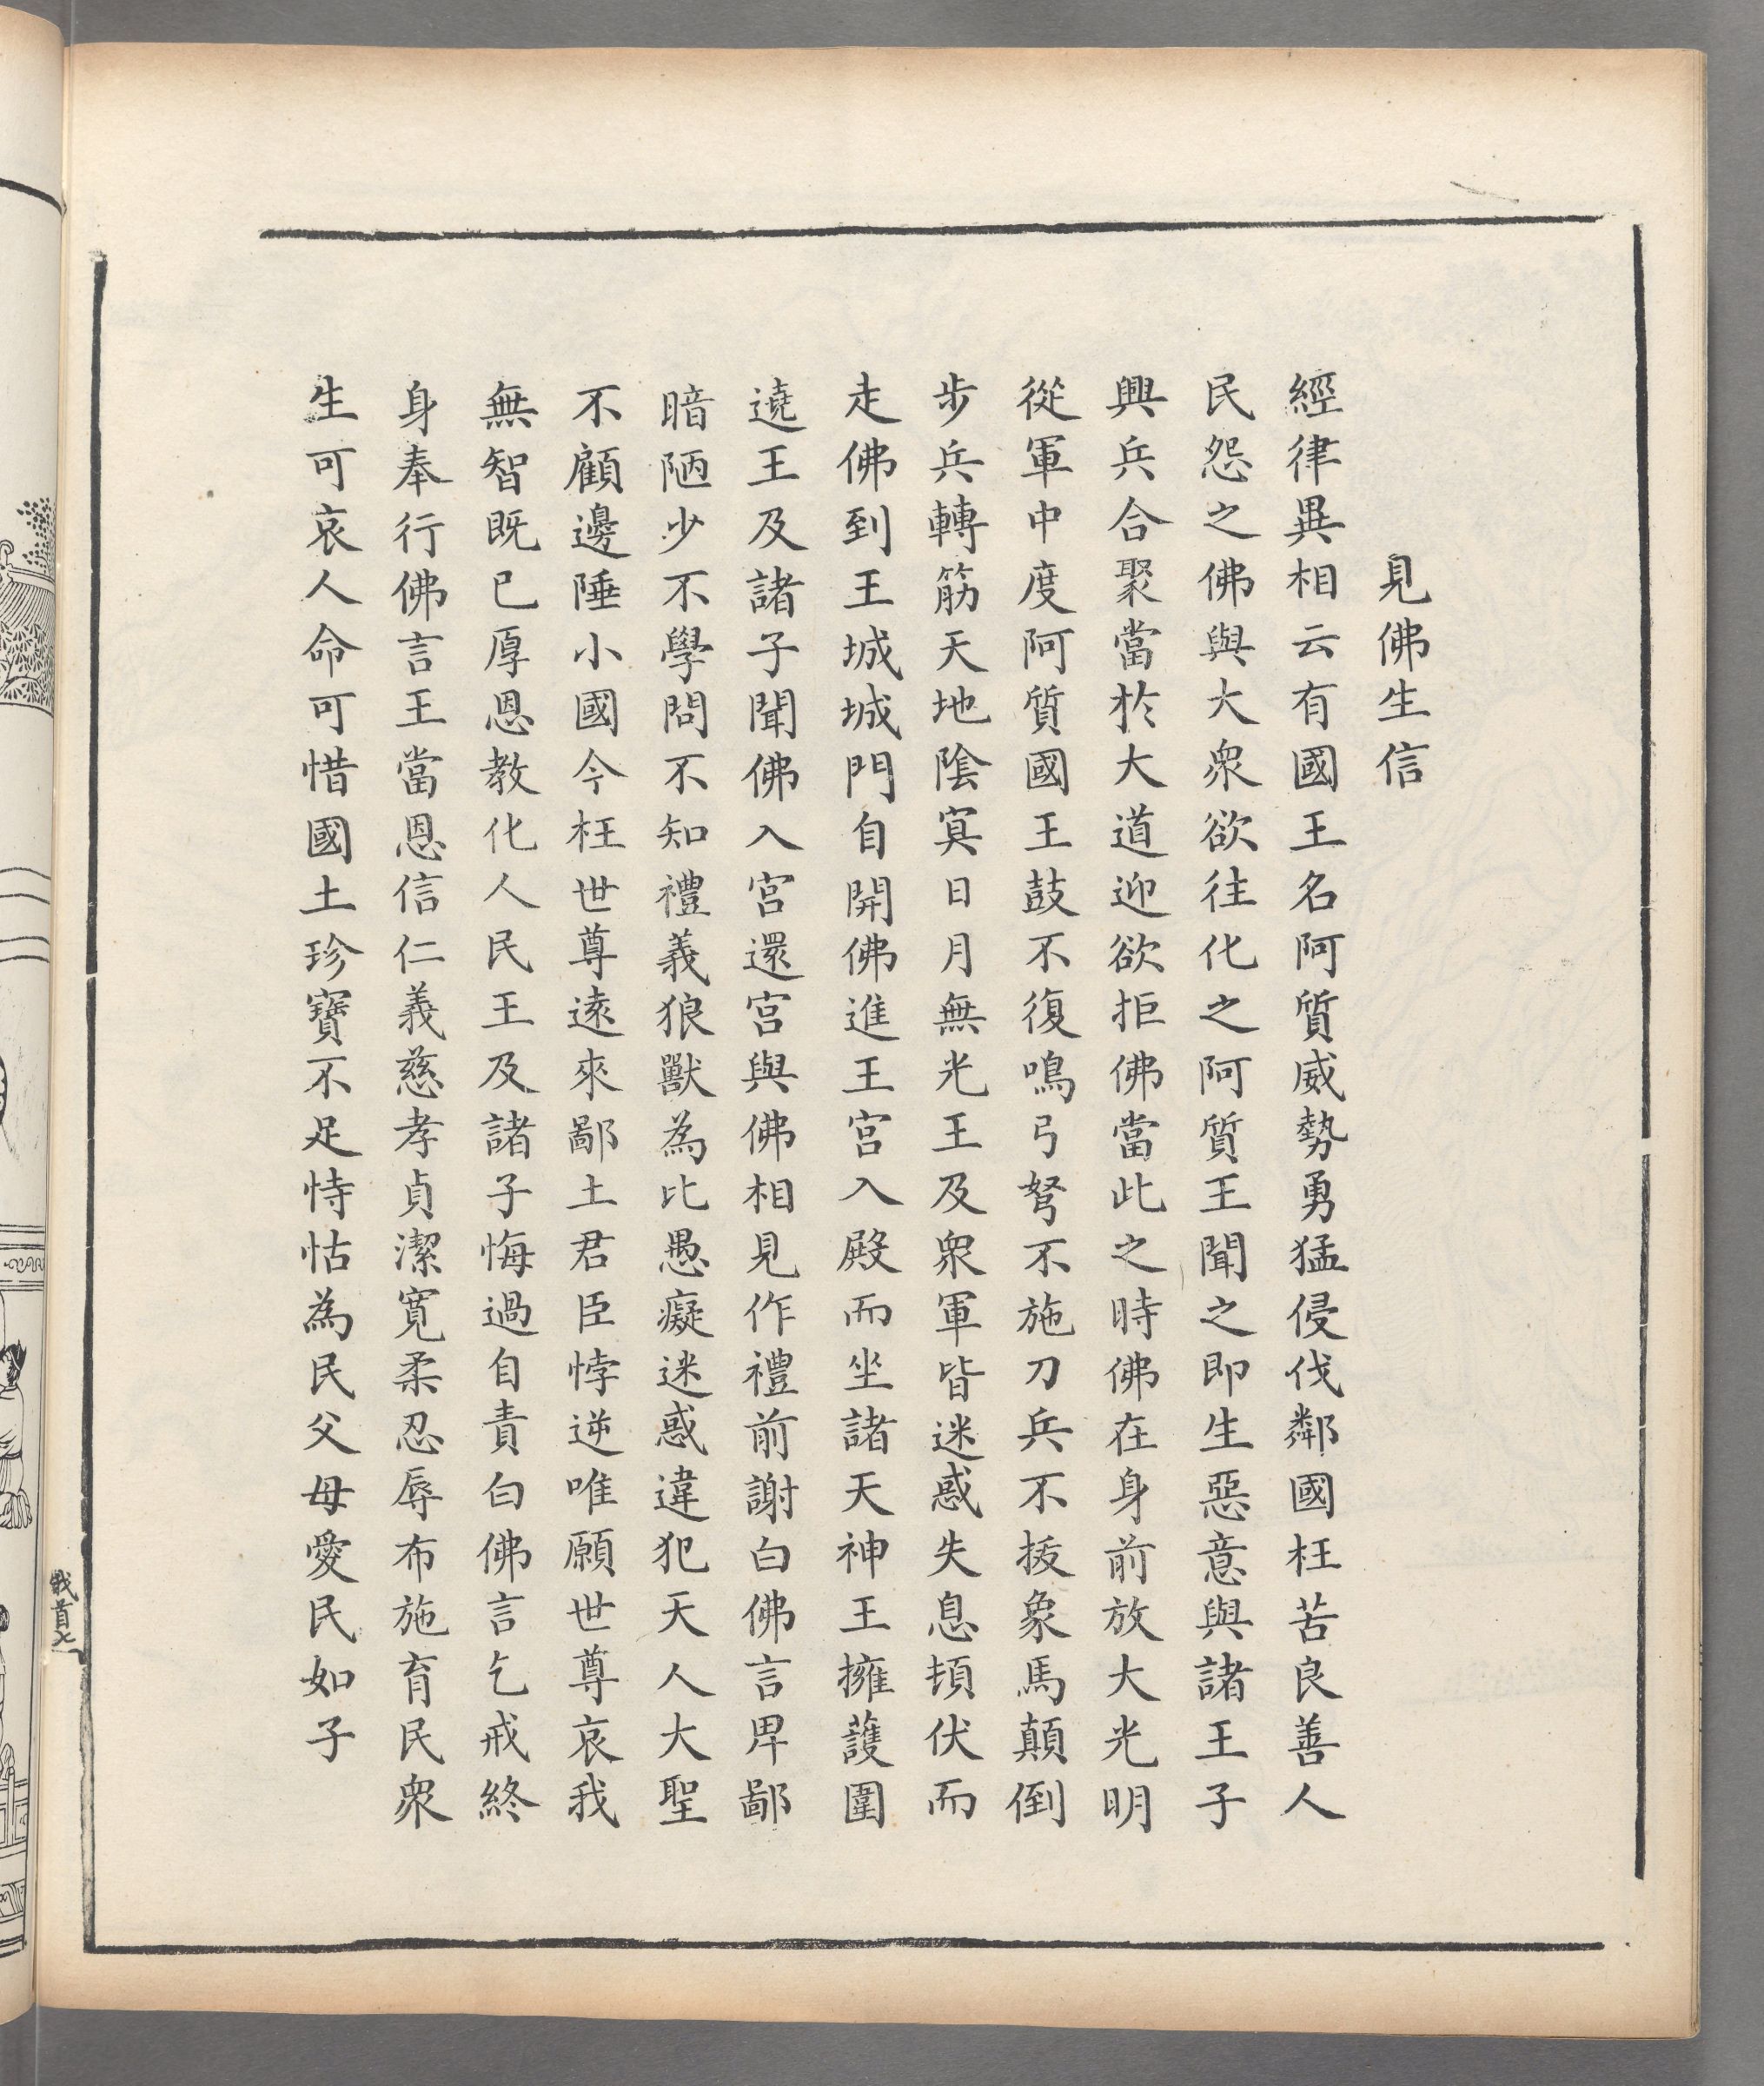 見佛生信
經律異相云有國王名阿質威勢勇猛侵伐鄰國枉苦良善人
民怨之佛與大衆欲往化之阿質王聞之即生惡意與諸王子
興兵合聚當於大道迎欲拒佛當此之時佛在身前放大光明
從軍中度阿質國王鼓不復鳴弓弩不施刀兵不拔象馬顛倒
步兵轉筋天地陰冥日月無光王及衆軍皆迷惑失息頓伏而
走佛到王城城門自開佛進王宮入殿而坐諸天神王擁護圍
遶王及諸子聞佛入宮還宮與佛相見作禮前謝白佛言卑鄙
暗陋少不學問不知禮義狼獸為比愚癡迷惑違犯天人大聖
不顧邊陲小國今枉世尊遠來鄙土君臣悖逆唯願世尊哀我
無智既已厚恩教化人民王及諸子悔過自責白佛言乞戒終
身奉行佛言王當恩信仁義慈孝貞潔寬柔忍辱布施育民衆
生可哀人命可惜國土珍寶不足恃怙為民父母愛民如子